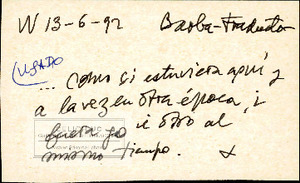 N 13-6-92 Barba-Traductor
USADO
... como si estuviera aquí y
a la vez en otra época, i
fuera yo i otro al
mismo tiempo. x